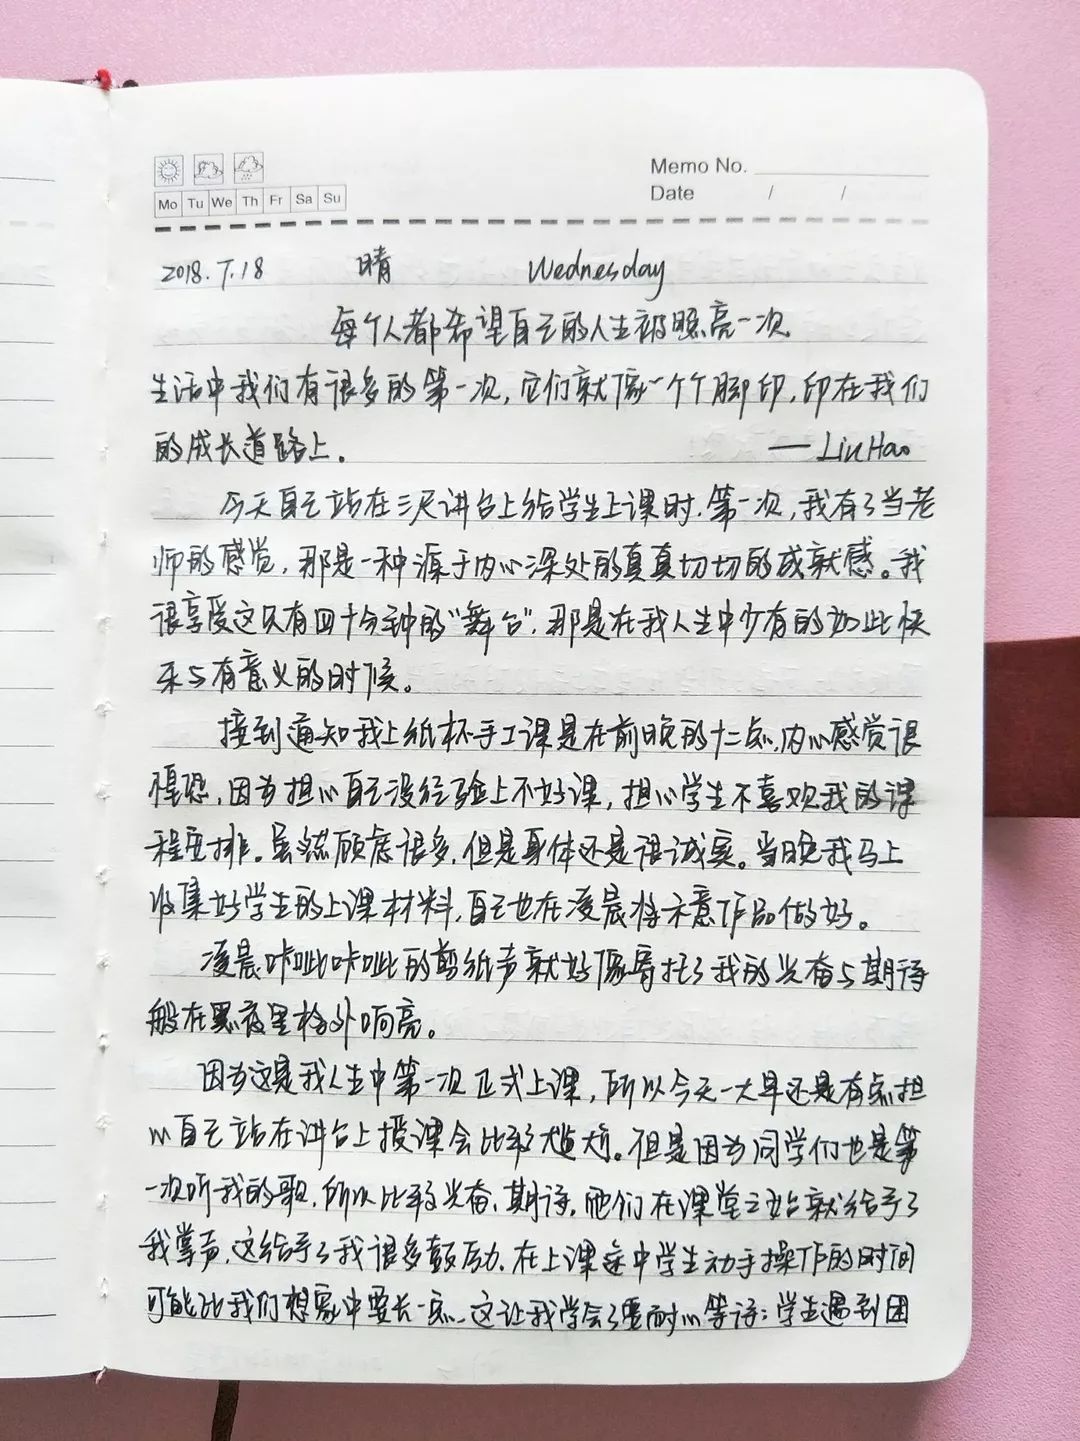 Memo No.
Mo Tu We Th Fr Sa Su
Date / /
2018.7.18 晴 Wednesday
每个人都希望自己的人生被照亮一次
生活中我们有很多的第一次，它们就像一个个脚印，印在我们
的成长道路上。 —— Liu Hao
今天自己站在三尺讲台上给学生上课时，第一次，我有了当老
师的感觉，那是一种源于内心深处的真真切切的成就感。我
很享受这只有四十分钟的“舞台”，那是在我人生中少有的如此快
乐与有意义的时候。
接到通知我上纸杯手工课是在前晚的十二点，内心感觉很
惶恐，因为担心自己没经验上不好课，担心学生不喜欢我的课
程安排。虽然顾虑很多，但是身体还是很诚实。当晚我马上
收集好学生的上课材料，自己也在凌晨将示意作品做好。
凌晨咔呲咔呲的剪纸声就好像寄托了我的兴奋与期待
般在黑夜里格外响亮。
因为这是我人生中第一次正式上课，所以今天一大早还是有点担
心自己站在讲台上授课会比较尴尬。但是因为同学们也是第
一次听我的歌，所以比较兴奋、期待，他们在课堂之始就给予了
我掌声，这给予了我很多鼓励，在上课途中学生动手操作的时间
可能比我们想象中要长一点，这让我学会了要耐心等待；学生遇到困